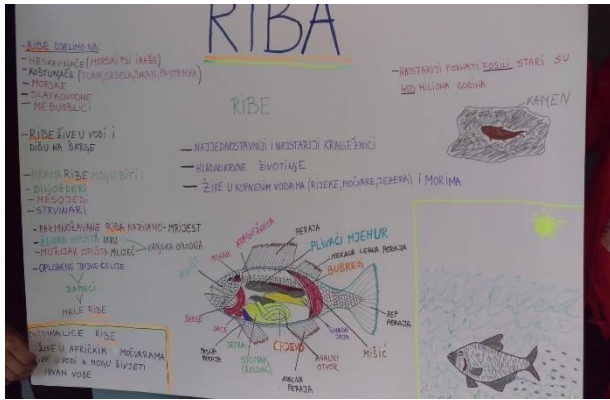 RIBA
- RIBE DIJELIMO NA:
- HRSKAVIČNJAČE (MORSKI PSI I RAŽE)
- KOŠTUNJAČE (TUNA, SRDELA, ŠARAN, PASTRMKA)
- MORSKE
- SLATKOVODNE
- MEĐUOBLICI
- RIBE ŽIVE U VODI I
DIŠU NA ŠKRGE
- HRANA RIBE MOGU BITI:
- BILJOŽDERI
- MESOJEDI
- STRVINARI
- RAZMNOŽAVANJE RIBA NAZIVAMO - MRIJEST
- ŽENKA ISPUŠTA IKRU
- MUŽIJAK ISPUŠTA MLIJEČ
VANJSKA OPLODNJA
- OPLOĐENE JAJNE ĆELIJE
ZAMECI
MALE RIBE
DVODIHALICE RIBE
ŽIVE U AFRIČKIM MOČVARAMA
ŽIVE U VODI A MOGU ŽIVJETI
IZVAN VODE
RIBE
- NAJJEDNOSTAVNIJI I NAJSTARIJI KRALJEŽNICI
- HLADNOKRVNE ŽIVOTINJE
- ŽIVE U KOPNENIM VODAMA (RIJEKE, MOČVARE, JEZERA) I MORIMA
- NAJSTARIJI POZNATI FOSILI STARI SU
450 MILIONA GODINA
KAMEN
MOZAK
KRALJEŽNICA
PERAJA
PLIVAĆI MJEHUR
MEKANA LEĐNA PERAJA
BUBREG
REP
PERAJA
MIŠIĆ
ANALNI
OTVOR
ANALNA
PERAJA
CRIJEVO
STOMAK
(ŽELUDAC)
JETRA
PERAJA
SRCE
ŠKRGE